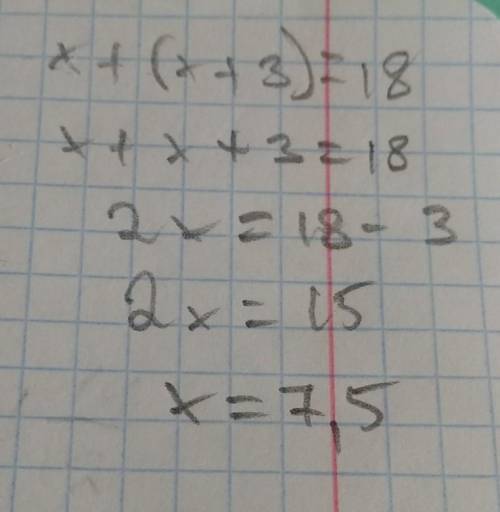 x + (x + 3) = 18
x + x + 3 = 18
2x = 18 - 3
2x = 15
x = 7,5